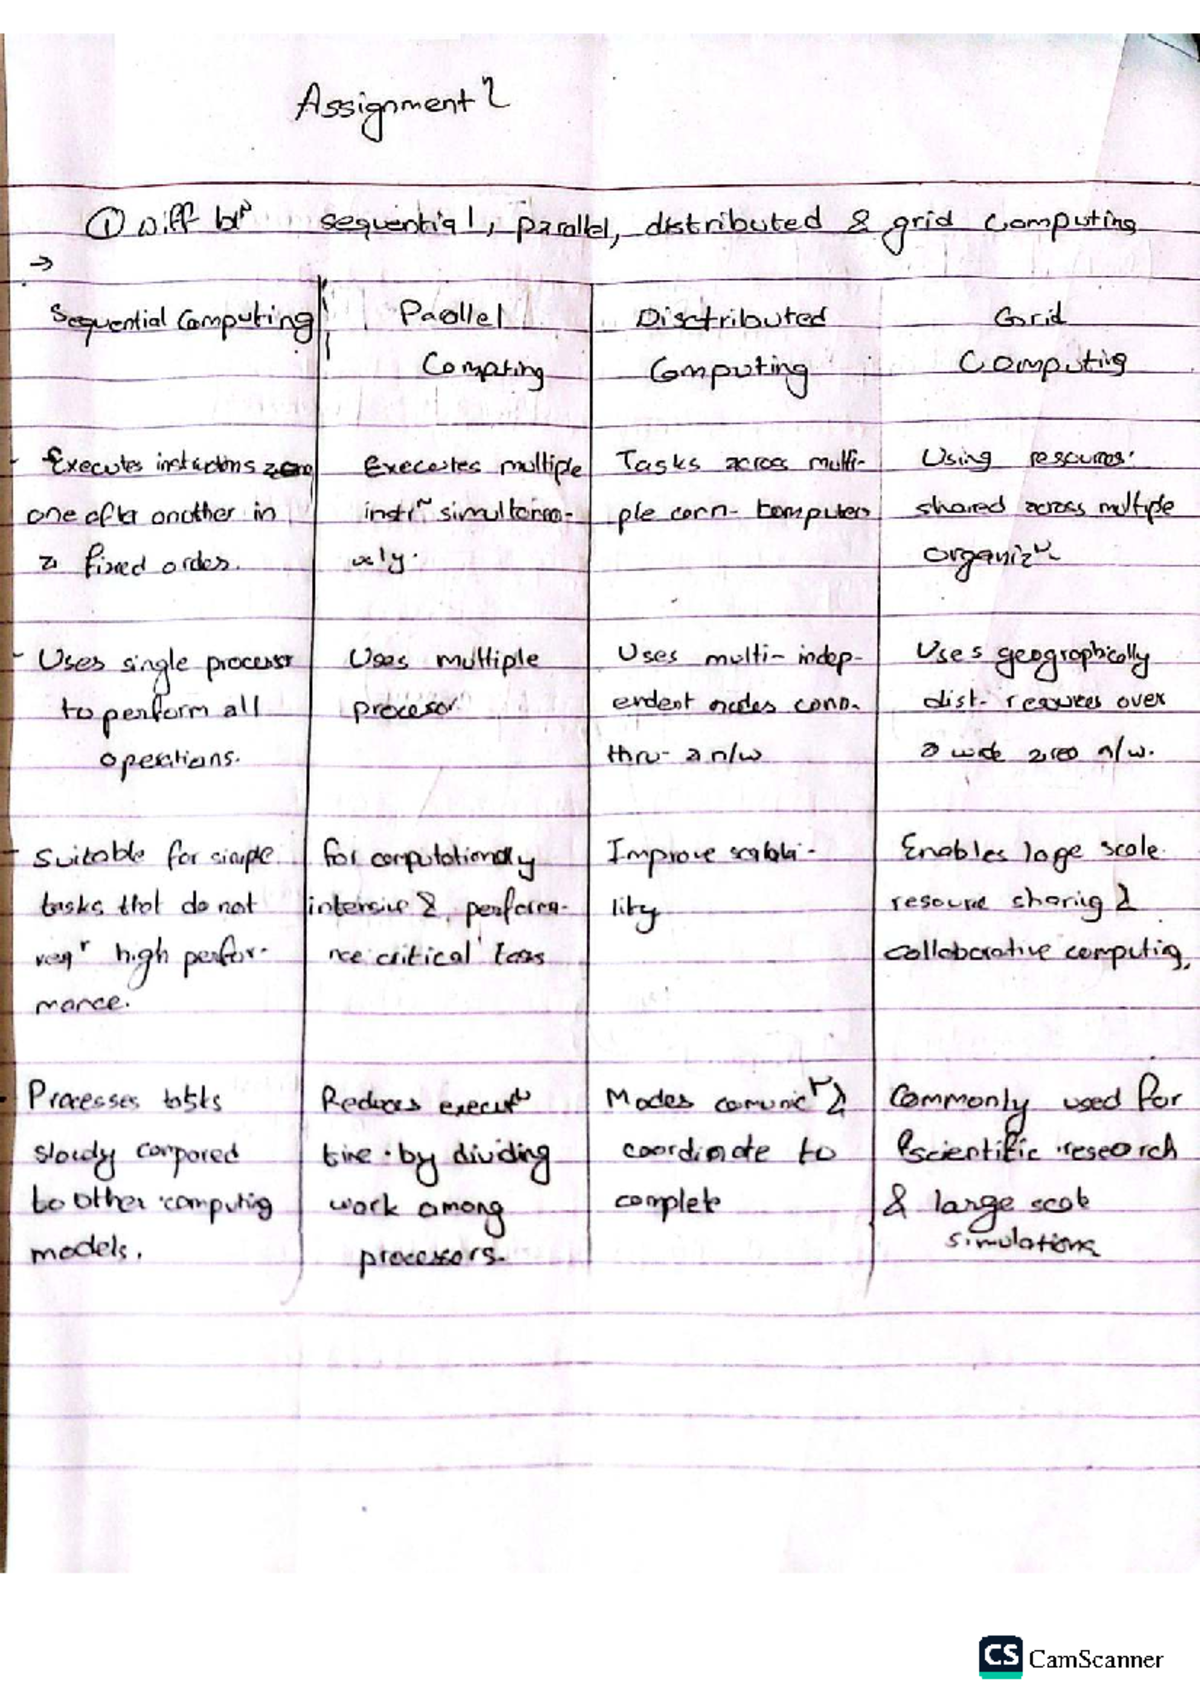 Assignment 2
① Diff btⁿ sequential, parallel, distributed & grid Computing
→
Sequential Computing
Parollel
Computing
Disctributed
Computing
Grid
Computing
- Executes instructions
one after another in
a fixed order.
Executes multiple
instrⁿ simultaneo-
usly.
Tasks across multi-
ple conn- computers
Using resources
shared across multiple
organizⁿ
- Uses single processr
to perform all
operations.
Uses multiple
procesor
Uses multi- indep-
endent nodes conn.
thru- a n/w
Uses geographically
dist- resources over
a wide area n/w.
- Suitable for simple
tasks that do not
reqʳ high perfor-
mance.
for computationally
intensive & performa-
nce critical tass
Improve scalabi-
lity
Enables large scale
resource sharing &
collaborative computing,
- Processes tasks
slowly compared
to other computing
models.
Reduces executⁿ
time by dividing
work among
processors.
Modes comunicⁿ &
coordinate to
complete
Commonly used for
scientific research
& large scale
simulations
CS CamScanner